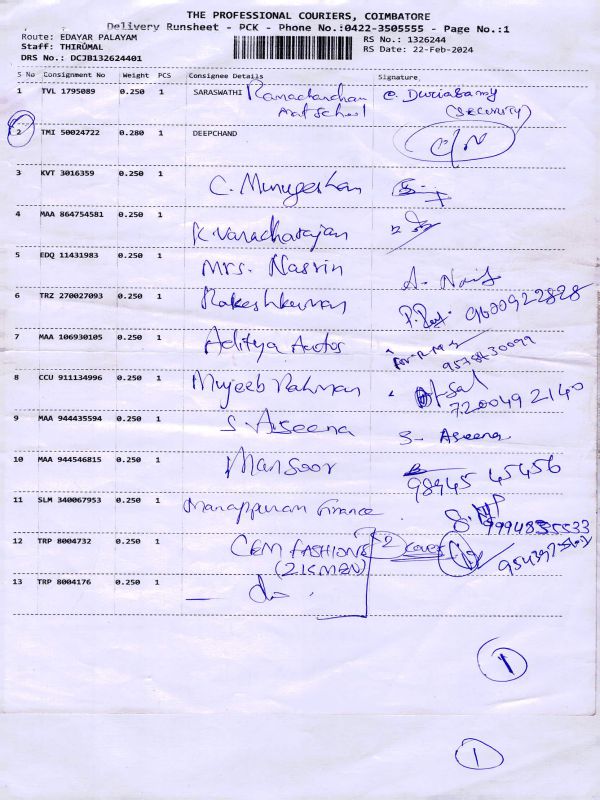 THE PROFESSIONAL COURIERS, COIMBATORE
Delivery Runsheet - PCK - Phone No.:0422-3505555 - Page No.:1
Route: EDAYAR PALAYAM RS No.: 1326244
Staff: THIRUMAL RS Date: 22-Feb-2024
DRS No.: DCJB132624401
S No Consignment No Weight PCS Consignee Details Signature
1 TVL 1795089 0.250 1 SARASWATHI Ramachandran
Mat School (SECURITY)
2 TMI 50024722 0.280 1 DEEPCHAND
3 KVT 3016359 0.250 1 C. Murugeshan
4 MAA 864754581 0.250 1 K. Varadharajan
5 EDQ 11431983 0.250 1 Mrs. Nasrin
6 TRZ 270027093 0.250 1 Rakeshkumar 9600922828
7 MAA 106930105 0.250 1 Aditya Autos
8 CCU 911134996 0.250 1 Mujeeb Rahman
7200492140
9 MAA 944435594 0.250 1 S. Aseena S- Aseena
10 MAA 944546815 0.250 1 Mansoor 98945 45456
11 SLM 340067953 0.250 1 Manappuram Finance
12 TRP 8004732 0.250 1 CEM FASHIONS 2 cover
(ZISMEN)
13 TRP 8004176 0.250 1 — do .
1
1